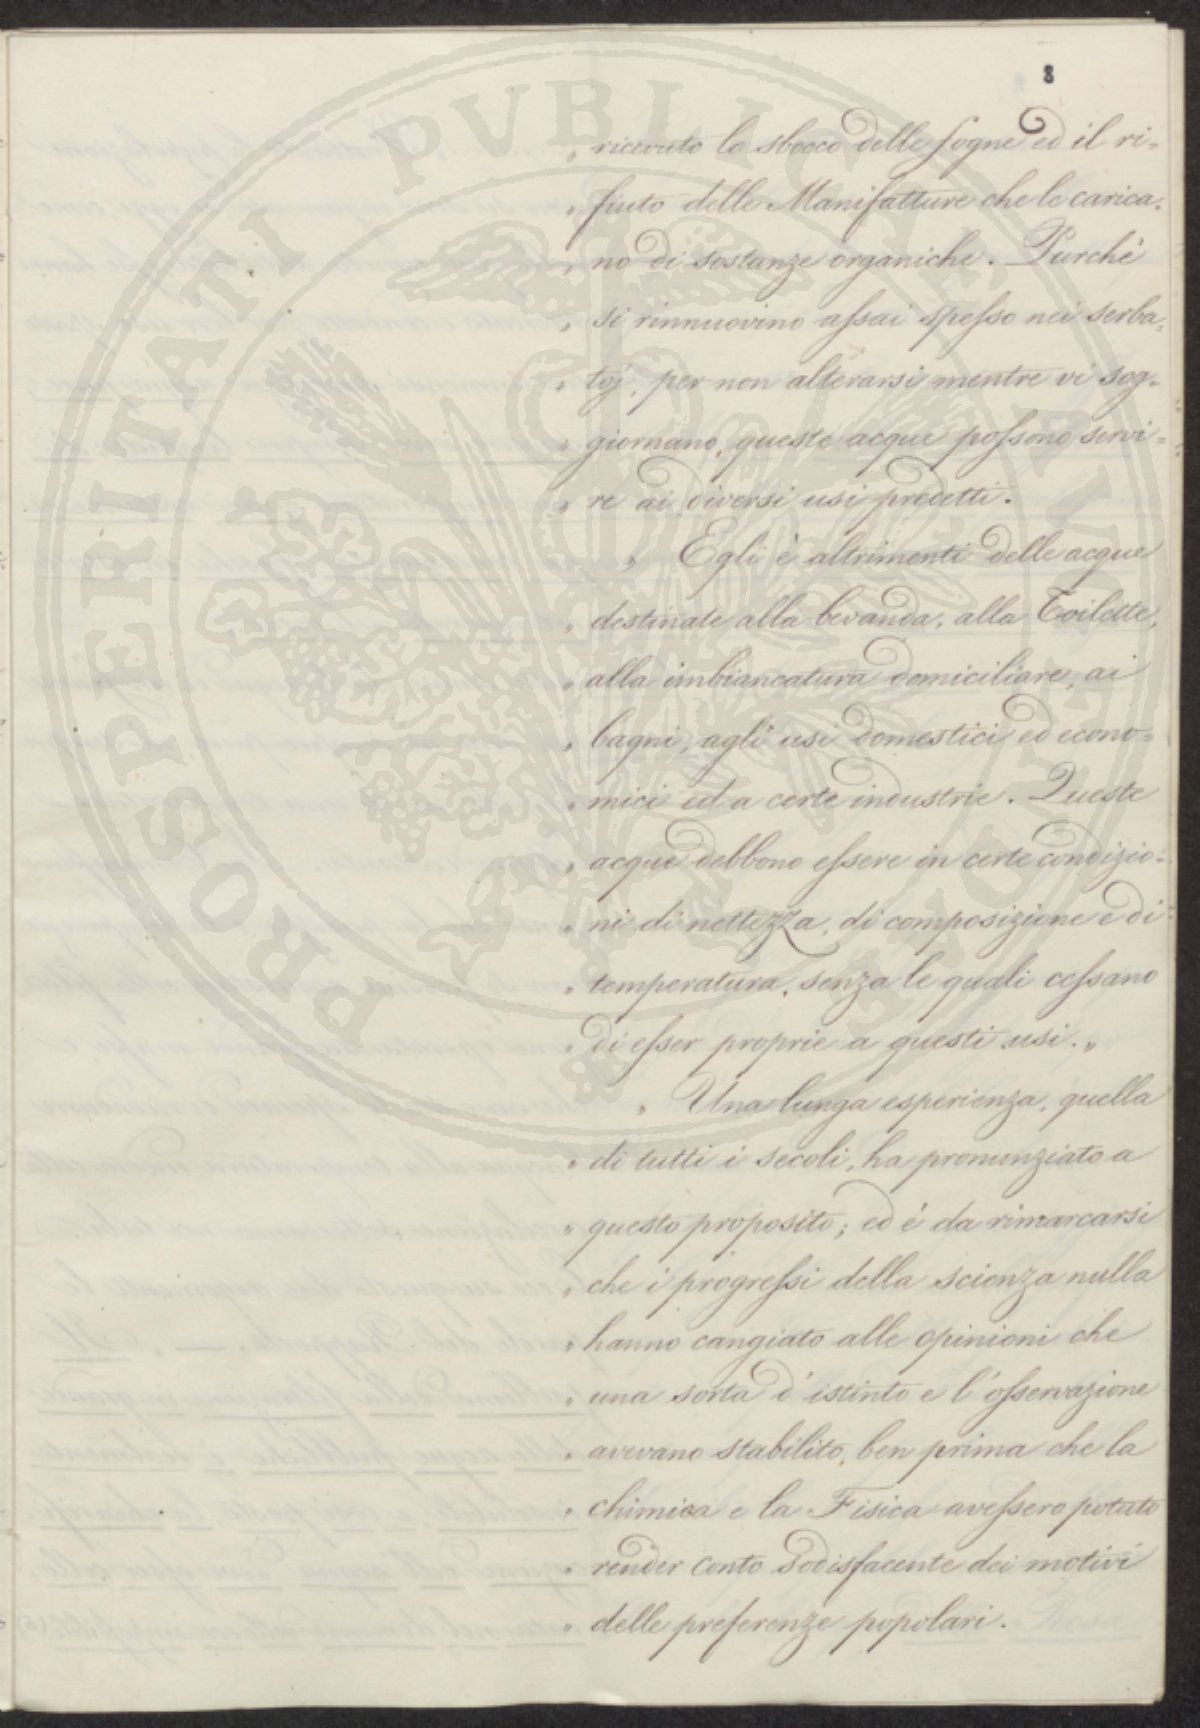 8
PROSPERITATI PUBLICAE AUGENDAE
„ ricevuto lo sbocco delle fogne ed il ri=
„ fiuto delle Manifatture che le carica=
„ no di sostanze organiche. Purchè
„ si rinnuovino assai spesso nei serba=
„ toj, per non alterarsi mentre vi sog=
„ giornano, queste acque possono servi=
„ re ai diversi usi predetti.
„ Egli è altrimenti delle acque
„ destinate alla bevanda, alla Toilette,
„ alla imbiancatura domiciliare, ai
„ bagni, agli usi domestici ed econo=
„ mici ed a certe industrie. Queste
„ acque debbono essere in certe condizio=
„ ni di nettezza, di composizione e di
„ temperatura, senza le quali cessano
„ di esser proprie a questi usi.„
„ Una lunga esperienza, quella
„ di tutti i secoli, ha pronunziato a
„ questo proposito; ed è da rimarcarsi
„ che i progressi della scienza nulla
„ hanno cangiato alle opinioni che
„ una sorta d'istinto e l'osservazione
„ avevano stabilito, ben prima che la
„ chimica e la Fisica avessero potuto
„ render conto sodisfacente dei motivi
„ delle preferenze popolari.